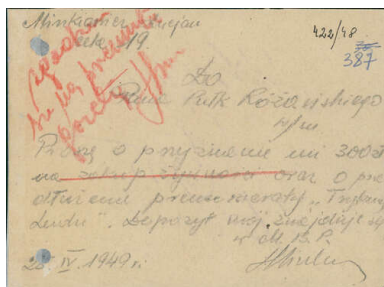 422/48
387
19.
zgoda
na prenumeratę
Do
Pana Płk Różańskiego
w/m
Proszę o przyznanie mi 300 zł
na zakup żywności oraz o prze
dłużenie prenumeraty „Trybuny
Ludu”. Depozyt mój znajduje się
w M. B. P.
28 IV. 1949 r.